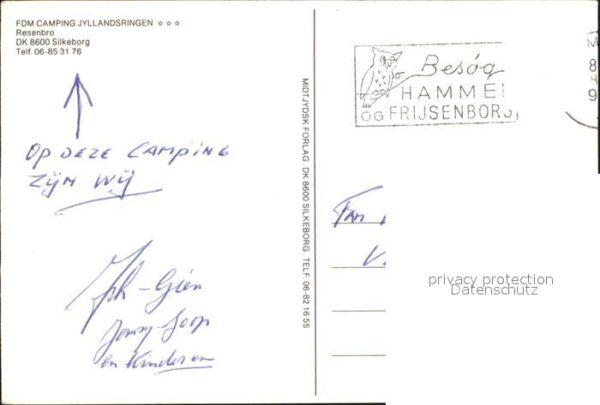 FDM CAMPING JYLLANDSRINGEN ★ ★ ★
Resenbro
DK 8600 Silkeborg
Telf. 06-85 31 76
OP DEZE CAMPING
ZIJN WIJ
- Gien
Joop
en Kinderen
MIDTJYDSK FORLAG DK 8600 SILKEBORG. TELF. 06-82 16 55
Besøg
HAMMEL
OG FRIJSENBORG
M
8
9
FAM
V.
privacy protection
Datenschutz